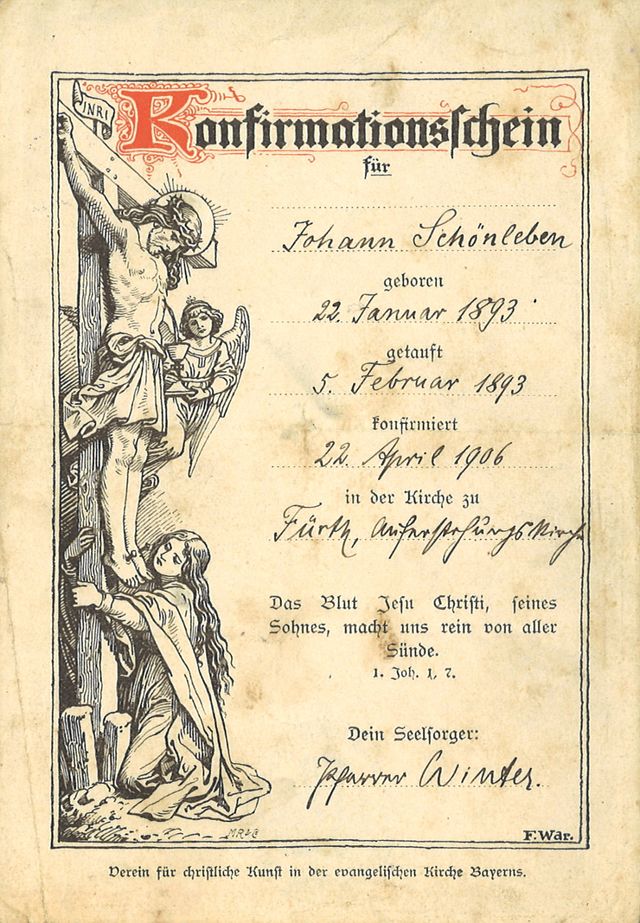 INRI
Konfirmationsschein
für
Johann Schönleben
geboren
22. Januar 1893
getauft
5. Februar 1893
konfirmiert
22. April 1906
in der Kirche zu
Fürth, Auferstehungskirche
Das Blut Jesu Christi, seines
Sohnes, macht uns rein von aller
Sünde.
1. Joh. 1, 7.
Dein Seelsorger:
Pfarrer Winter.
F. War.
Verein für christliche Kunst in der evangelischen Kirche Bayerns.